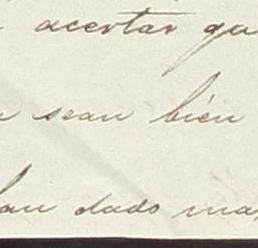 acertar qu
sean bién
han dado mas